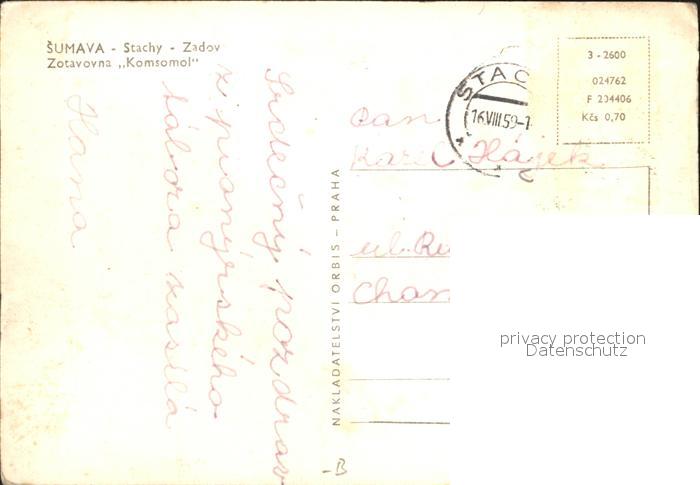 ŠUMAVA - Stachy - Zadov
Zotavovna „Komsomol"
Srdečný pozdrav
z pionýrského
tábora zasílá
Hana
NAKLADATELSTVÍ ORBIS - PRAHA
STAC
16.VIII.59-1
3 - 2600
024762
F 234406
Kčs 0,70
Karel Hájek
ul.
privacy protection
Datenschutz
-B